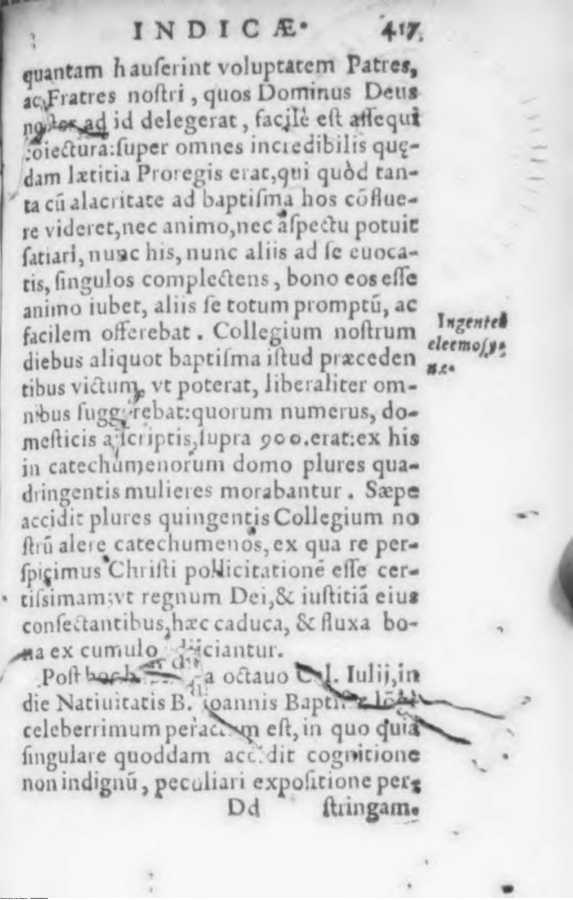 INDICÆ. 417.
quantam hauſerint voluptatem Patres,
ac Fratres noſtri, quos Dominus Deus
ad id delegerat, facilè eſt aſſequi
coiectura: ſuper omnes incredibilis quę-
dam lætitia Proregis erat, qui quòd tan-
ta cū alacritate ad baptiſma hos cōflue-
re videret, nec animo, nec aſpectu potuit
ſatiari, nunc his, nunc aliis ad ſe euoca-
tis, ſingulos complectens, bono eos eſſe
animo iubet, aliis ſe totum promptū, ac
facilem offerebat. Collegium noſtrum
diebus aliquot baptiſma iſtud præceden
tibus victum, vt poterat, liberaliter om-
nibus ſuggerebat: quorum numerus, do-
meſticis aſcriptis, ſupra 900. erat: ex his
in catechumenorum domo plures qua-
dringentis mulieres morabantur. Sæpe
accidit plures quingentis Collegium no
ſtrū alere catechumenos, ex qua re per-
ſpicimus Chriſti pollicitationē eſſe cer-
tiſſimam: vt regnum Dei, & iuſtitiā eius
conſectantibus, hæc caduca, & fluxa bo-
na ex cumulo
Poſt a octauo Cal. Iulij, in
die Natiuitatis B. Ioannis Baptiſtæ
celeberrimum peractum eſt, in quo quia
ſingulare quoddam accidit cognitione
non indignū, peculiari expoſitione per-
Dd ſtringam.
Ingentes
eleemoſy-
næ.